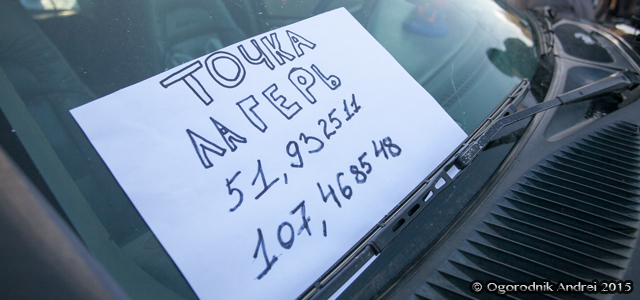 ТОЧКА
ЛАГЕРЬ
51,932511
107,468548
© Ogorodnik Andrei 2015